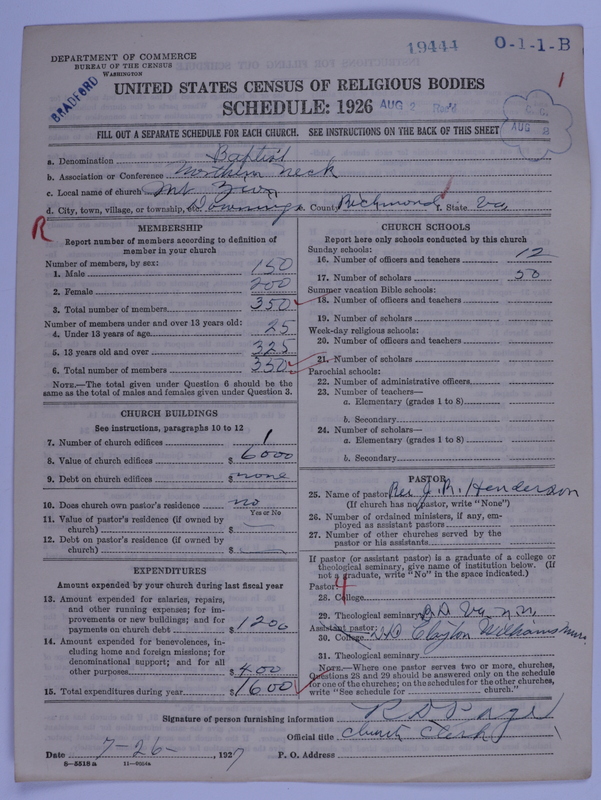 19444 0-1-1-B
DEPARTMENT OF COMMERCE
BUREAU OF THE CENSUS
WASHINGTON
BRADFORD
1
UNITED STATES CENSUS OF RELIGIOUS BODIES
SCHEDULE: 1926 AUG 2 Rec'd
C.G.
AUG 8
FILL OUT A SEPARATE SCHEDULE FOR EACH CHURCH. SEE INSTRUCTIONS ON THE BACK OF THIS SHEET
a. Denomination Baptist
b. Association or Conference Northern Neck
c. Local name of church Mt Zion
d. City, town, village, or township, etc. Downings e. County Richmond f. State Va
R
MEMBERSHIP
Report number of members according to definition of
member in your church
Number of members, by sex:
1. Male 150
2. Female 200
3. Total number of members 350
Number of members under and over 13 years old:
4. Under 13 years of age 25
5. 13 years old and over 325
6. Total number of members 350
NOTE.—The total given under Question 6 should be the
same as the total of males and females given under Question 3.
CHURCH BUILDINGS
See instructions, paragraphs 10 to 12
7. Number of church edifices 1
8. Value of church edifices $ 6000
9. Debt on church edifices $ none
10. Does church own pastor's residence no
Yes or No
11. Value of pastor's residence (if owned by
church) $
12. Debt on pastor's residence (if owned by
church) $
EXPENDITURES
Amount expended by your church during last fiscal year
13. Amount expended for salaries, repairs,
and other running expenses; for im-
provements or new buildings; and for
payments on church debt $ 1200
14. Amount expended for benevolences, in-
cluding home and foreign missions; for
denominational support; and for all
other purposes $ 400
15. Total expenditures during year $ 1600
CHURCH SCHOOLS
Report here only schools conducted by this church
Sunday schools:
16. Number of officers and teachers 12
17. Number of scholars 50
Summer vacation Bible schools:
18. Number of officers and teachers
19. Number of scholars
Week-day religious schools:
20. Number of officers and teachers
21. Number of scholars
Parochial schools:
22. Number of administrative officers
23. Number of teachers—
a. Elementary (grades 1 to 8)
b. Secondary
24. Number of scholars—
a. Elementary (grades 1 to 8)
b. Secondary
PASTOR
25. Name of pastor Rev J. R. Henderson
(If church has no pastor, write "None")
26. Number of ordained ministers, if any, em-
ployed as assistant pastors
27. Number of other churches served by the
pastor or his assistants
If pastor (or assistant pastor) is a graduate of a college or
theological seminary, give name of institution below. (If
not a graduate, write "No" in the space indicated.)
Pastor: 4
28. College
29. Theological seminary BD Va
Assistant pastor:
30. College DD Clayton Williams
31. Theological seminary
NOTE.—Where one pastor serves two or more churches,
Questions 28 and 29 should be answered only on the schedule
for one of the churches; on the schedules for the other churches,
write "See schedule for church."
Signature of person furnishing information R D Page
Official title Church Clerk
Date 7-26-, 1927 P. O. Address
8—5518 a 11—9204a